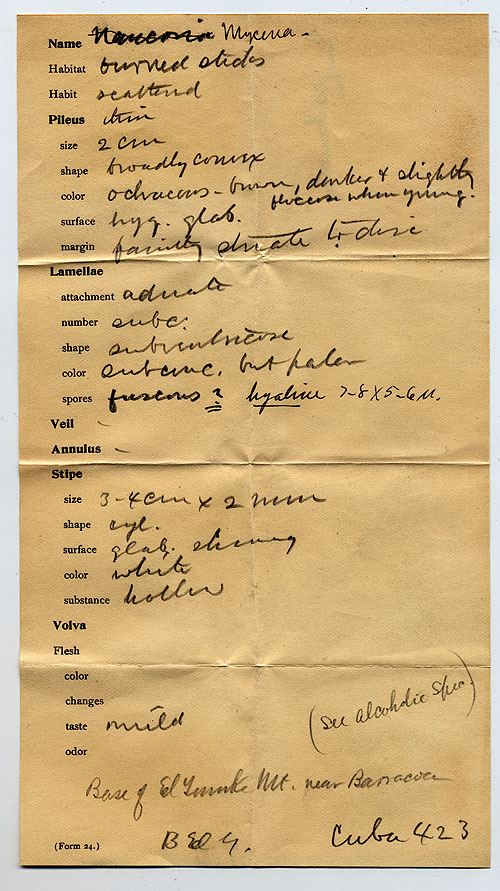 Name Naucoria Mycena -
Habitat burned sticks
Habit scattered
Pileus thin
size 2 cm
shape broadly convex
color ochraceous-brown, darker & slightly
floccose when young.
surface hyg. glab.
margin faintly striate to disc
Lamellae
attachment adnate
number subc.
shape subventricose
color subconc. but paler
spores fuscous ? hyaline 7-8 X 5-6 µ.
Veil -
Annulus -
Stipe
size 3-4 cm x 2 mm
shape cyl.
surface glab. shining
color white
substance hollow
Volva
Flesh
color
changes
taste mild
odor
(See alcoholic Spec.)
Base of El Yunke Mt. near Barracoa
(Form 24.) Cuba 423